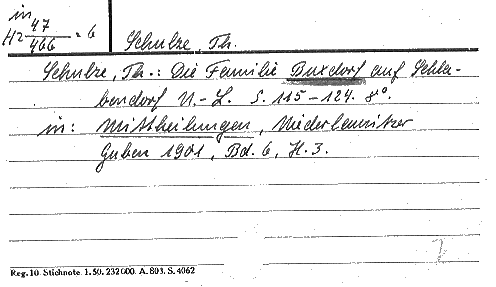 in
H2 47/466 = 6
Schulze, Th.
Schulze, Th.: Die Familie Buxdorf auf Schla-
bendorf N.-L. S. 115-124. 8°.
in: Mittheilungen, Niederlausitzer
Guben 1901, Bd. 6, H. 3.
Reg. 10. Stichnote. 1. 50. 232000. A. 803. S. 4062